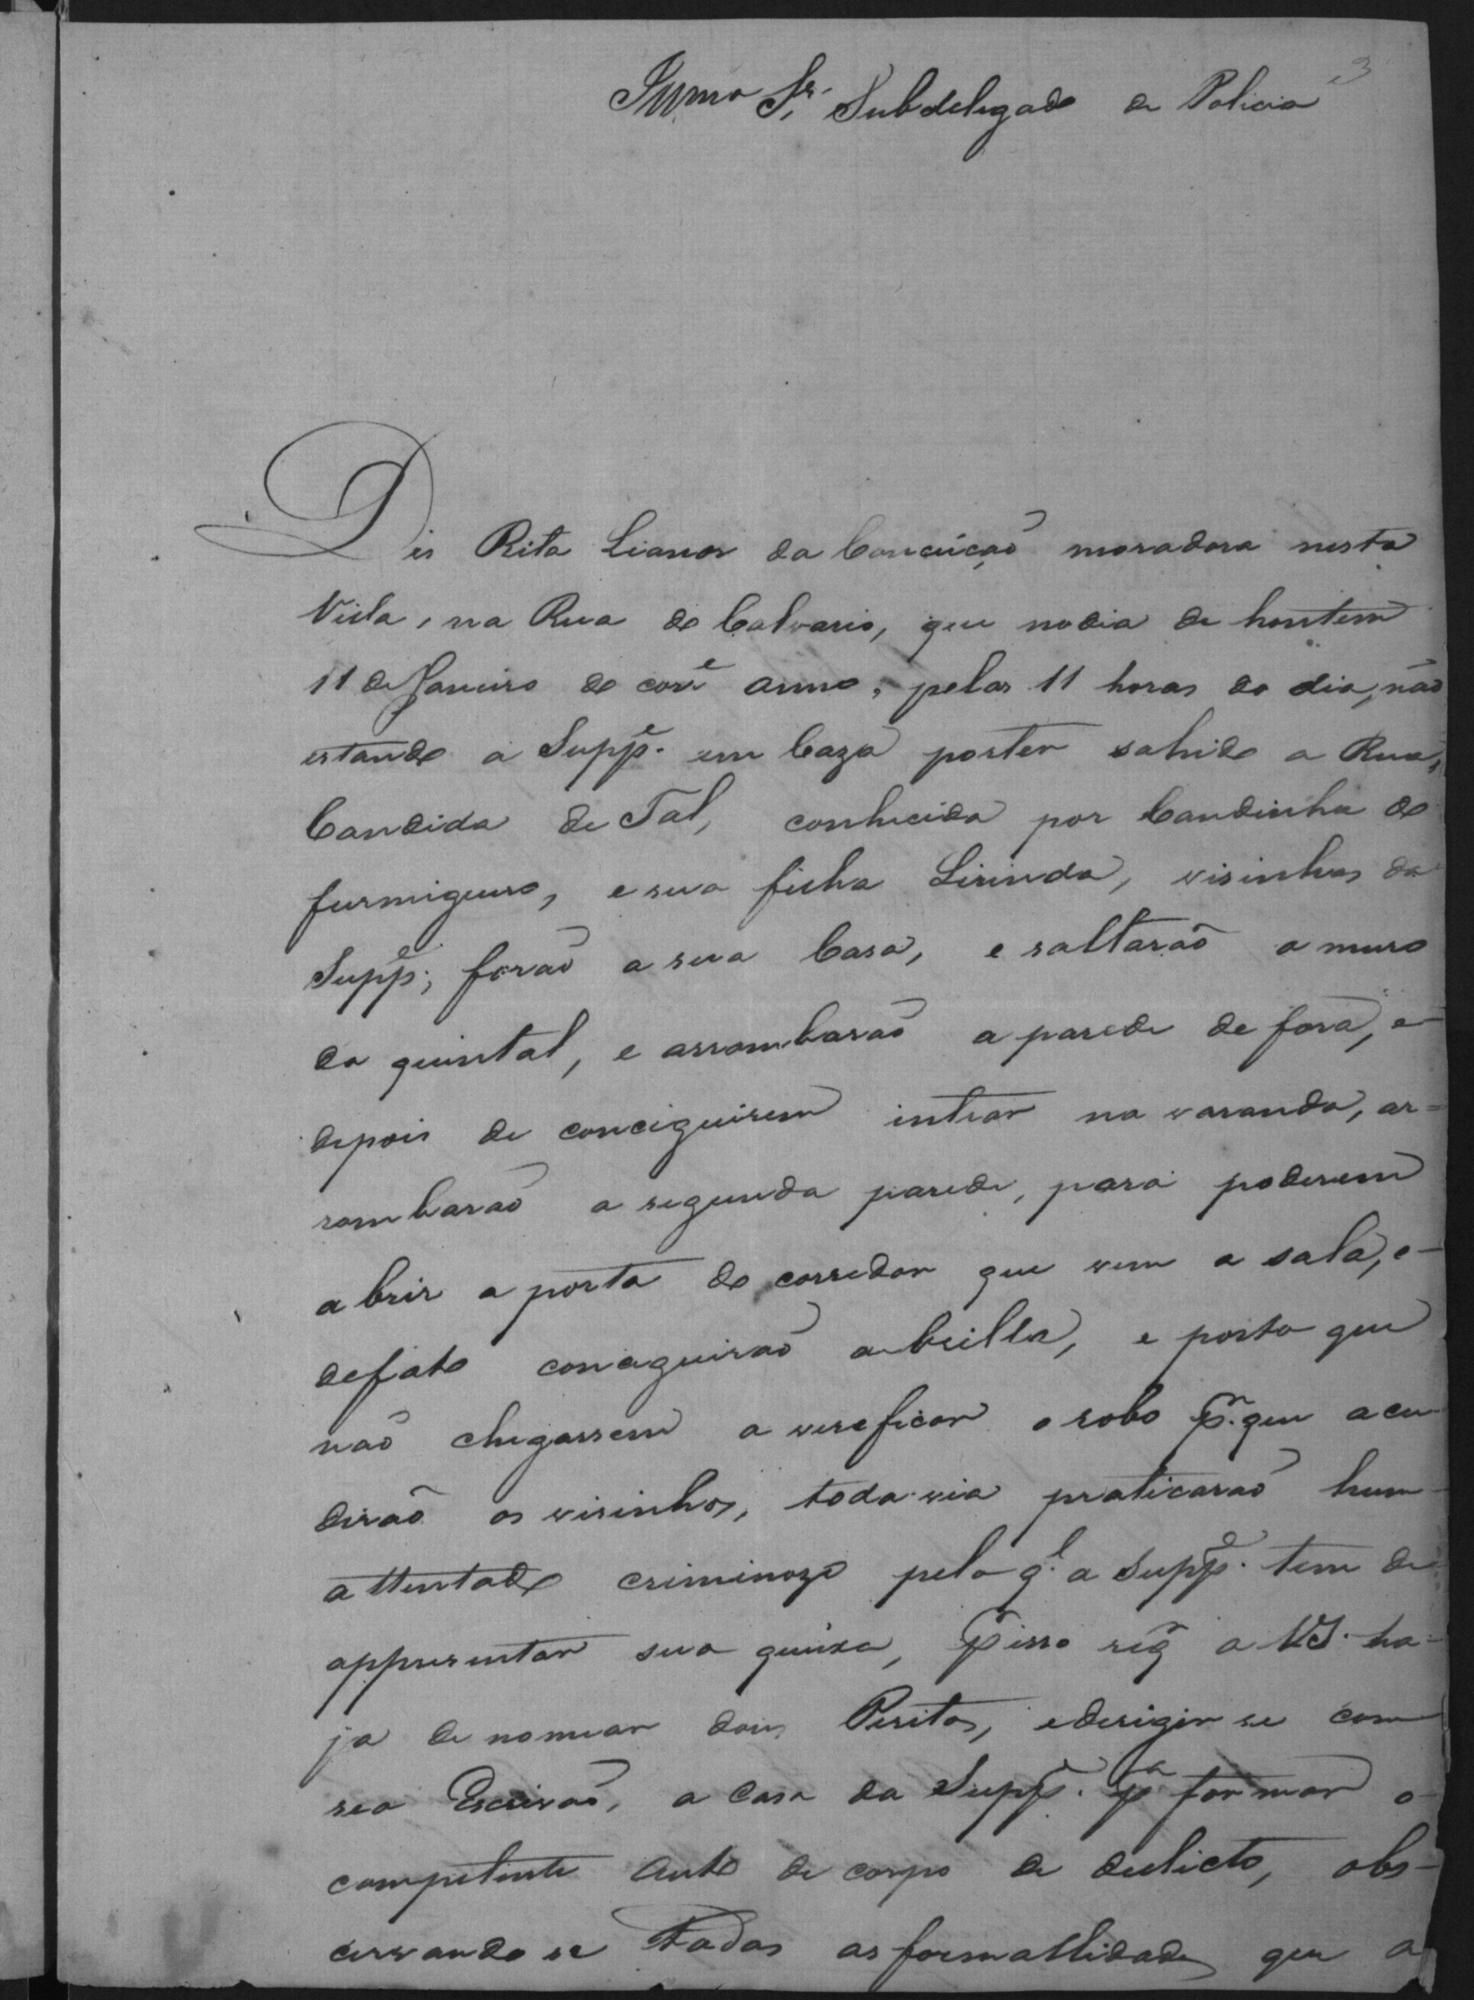 3
Illmo Sr. Subdelegado de Policia
Dis Rita Lianor da Conceição moradora nesta
Villa, na Rua do Calvario, que no dia de hontem
11 de Janeiro do corre anno, pelas 11 horas do dia, não
estando a Suppe. em Caza por ter sahido a Rua,
Candida de Tal, conhecida por Candinha do
furmigueiro, e sua filha Lirinda, visinhas da
Suppe; forão a sua Casa, e saltarão o muro
do quintal, e arrombarão a parede de fora, e
depois de conciguirem intrar na varanda, ar=
rombarão a segunda parede, para poderem
abrir a porta do corredor que vem a sala, e
de fato conciguirão abrilla, e posto que
não chegassem a vereficar o robo pr. que acu
dirão os visinhos, toda via praticarão hum
attentado criminozo pelo ql. a Suppe. tem de
appresentar sua queixa, pr isso reqr a VS. ha=
ja de nomear dois Peritos, e derigir se com
seo Escrivão, a Casa da Suppe. pa formar o
competente auto de corpo de delicto, obs=
cervando se todas as formallidades que a